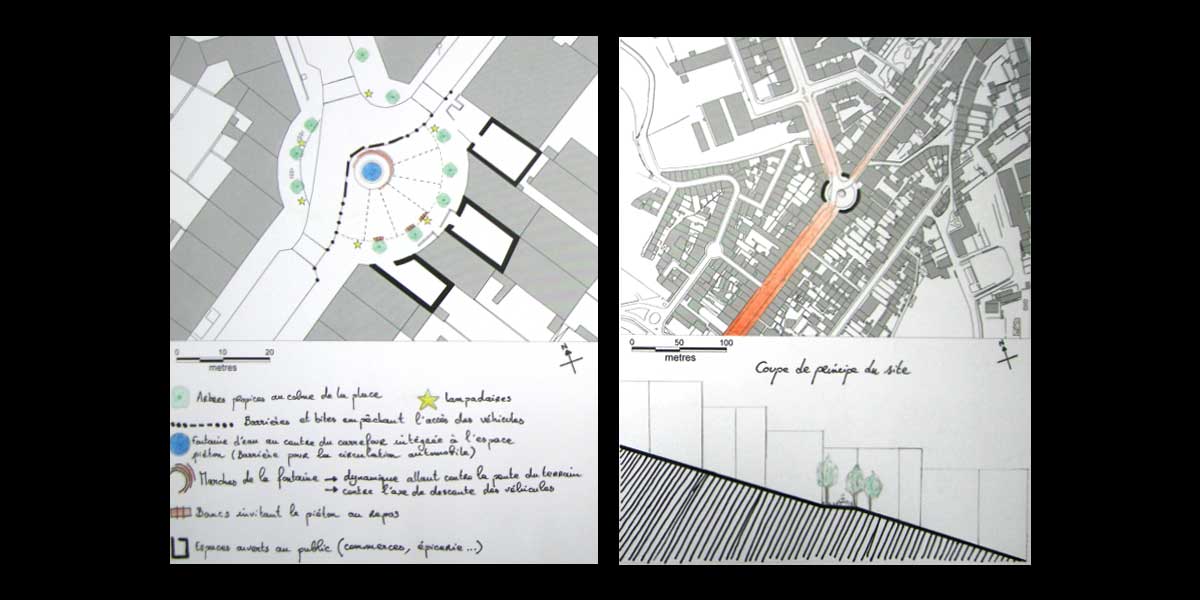 0 10 20
metres
N
Arbres propices au calme de la place
Lampadaires
Barrières et bites empêchant l'accès des véhicules
Fontaine d'eau au centre du carrefour intégrée à l'espace
piéton (Barrière pour la circulation automobile)
Marches de la fontaine → dynamique allant contre la pente du terrain
→ contre l'axe de descente des véhicules
Bancs invitant le piéton au repos
Espaces ouverts au public (commerces, épicerie...)
0 50 100
metres
N
Coupe de principe du site